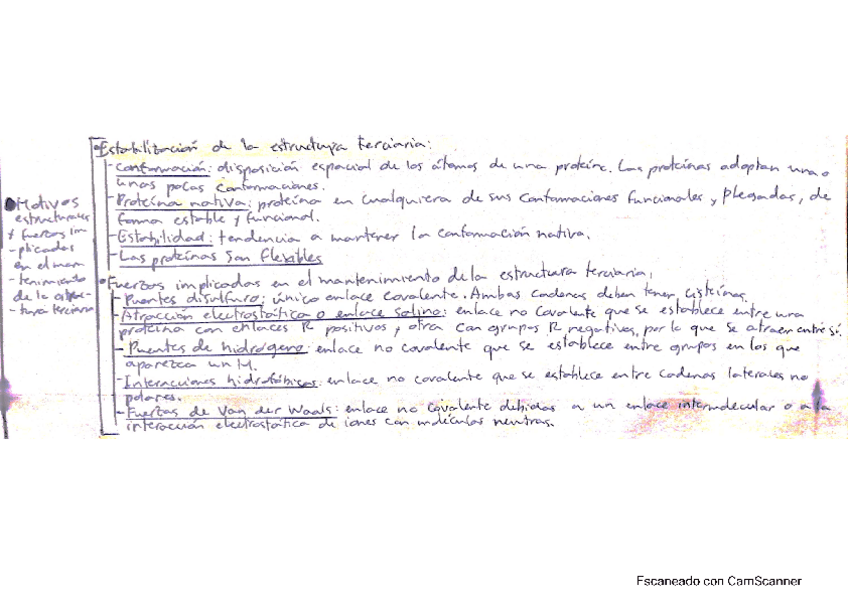 Motivos
estructurales
y fuerzas im
-plicadas
en el man
-tenimiento
de la estruc-
tura terciaria
Estabilización de la estructura terciaria:
-Conformación: disposición espacial de los átomos de una proteína. Las proteínas adoptan una o
unas pocas conformaciones.
-Proteína nativa: proteína en cualquiera de sus conformaciones funcionales y plegadas, de
forma estable y funcional.
-Estabilidad: tendencia a mantener la conformación nativa.
-Las proteínas son flexibles
Fuerzas implicadas en el mantenimiento de la estructura terciaria:
-Puentes disulfuro: único enlace covalente. Ambas cadenas deben tener cisteínas.
-Atracción electrostática o enlace salino: enlace no covalente que se establece entre una
proteína con enlaces R positivos y otra con grupos R negativos, por lo que se atraen entre sí.
-Puentes de hidrógeno: enlace no covalente que se establece entre grupos en los que
aparezca un H.
-Interacciones hidrofóbicas: enlace no covalente que se establece entre cadenas laterales no
polares.
-Fuerzas de Van der Waals: enlace no covalente debidas a un enlace intermolecular o a la
interacción electrostática de iones con moléculas neutras.
Escaneado con CamScanner